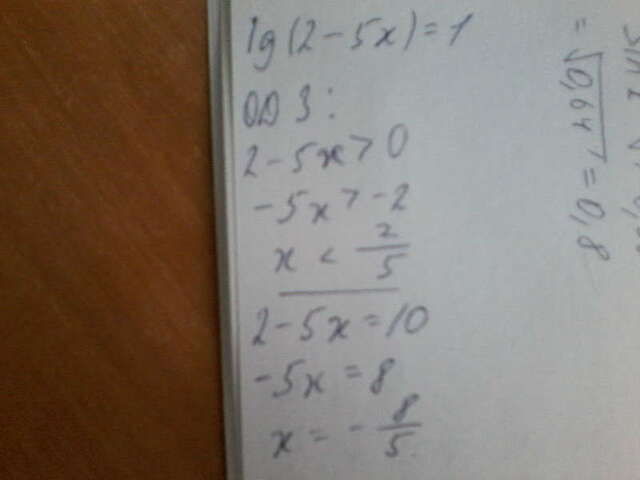 lg(2-5x)=1
ОДЗ:
2-5x>0
-5x>-2
x < 2/5
2-5x=10
-5x=8
x=-8/5
=√0,64=0,8